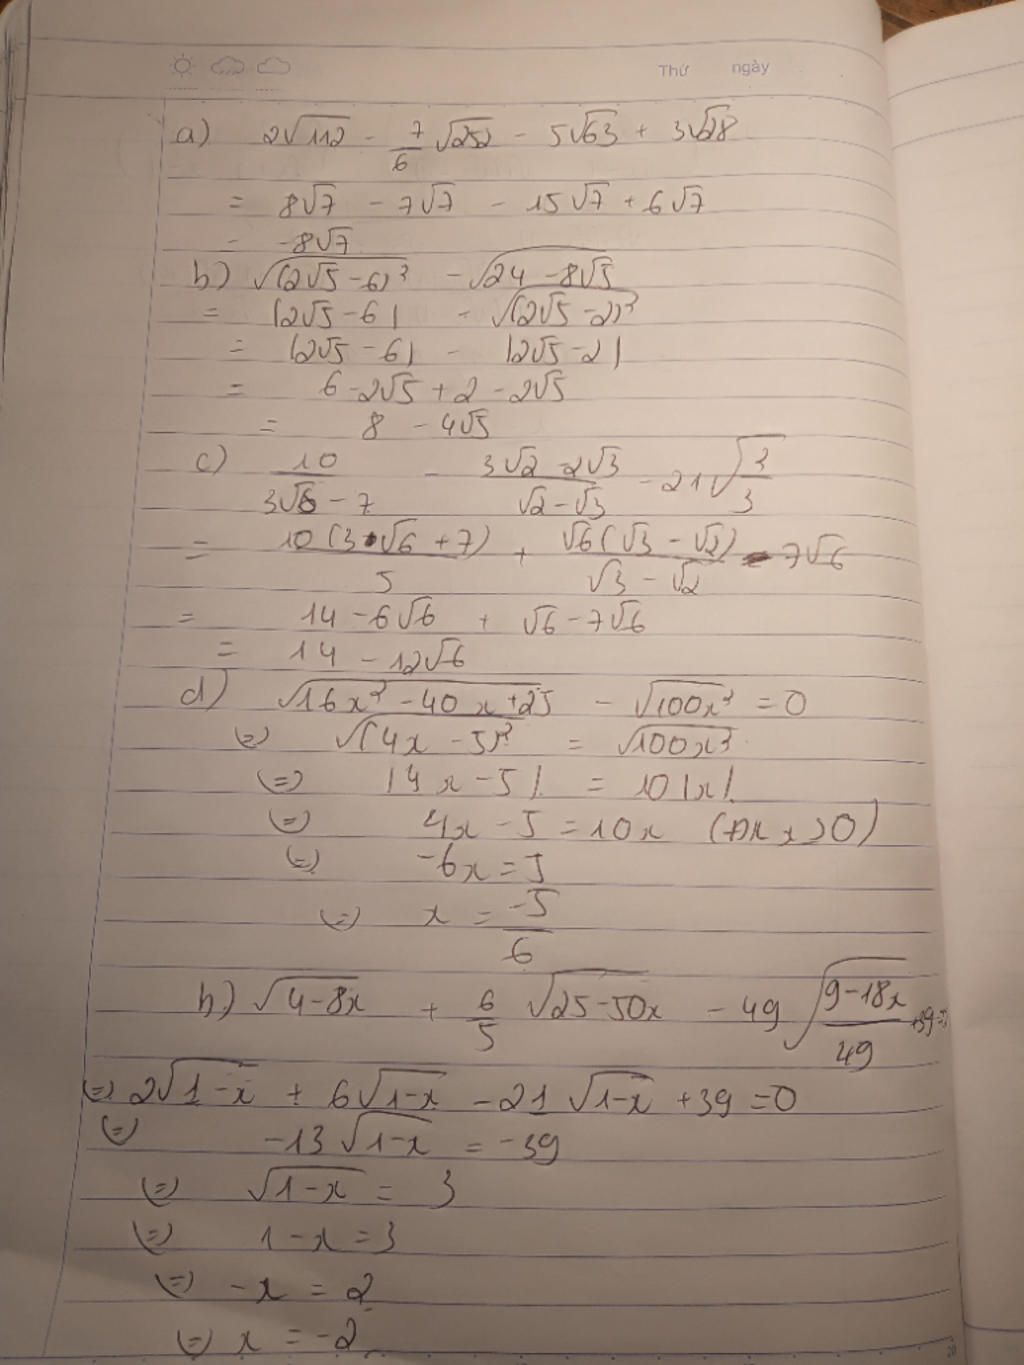 Thứ ngày
a) 2√112 - 7/6 √252 - 5√63 + 3√28
= 8√7 - 7√7 - 15√7 + 6√7
= -8√7
b) √(2√5 - 6)² - √(24 - 8√5)
= |2√5 - 6| - √(2√5 - 2)²
= |2√5 - 6| - |2√5 - 2|
= 6 - 2√5 + 2 - 2√5
= 8 - 4√5
c) 10/(3√6 - 7) - (3√2 - 2√3)/(√2 - √3) - 21√(2/3)
= 10(3√6 + 7)/5 + √6(√3 - √2)/(√3 - √2) - 7√6
= 14 - 6√6 + √6 - 7√6
= 14 - 12√6
d) √(16x² - 40x + 25) - √(100x²) = 0
(=) √(4x - 5)² = √(100x²)
(=) |4x - 5| = 10|x|
(=) 4x - 5 = 10x
(=) -6x = 5
(=) x = -5/6
h) √(4 - 8x) + 6/5 √(25 - 50x) - 49 √((9 - 18x)/49) + 39 =
(=) 2√(1 - x) + 6√(1 - x) - 21√(1 - x) + 39 = 0
(=) -13√(1 - x) = -39
(=) √(1 - x) = 3
(=) 1 - x = 3
(=) -x = 2
(=) x = -2
20